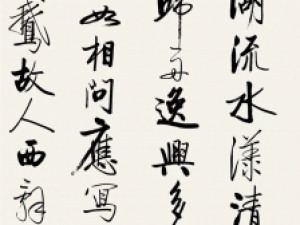 湖流水漾清
歸舟逸興多
如相問應寫
鵞故人西辭